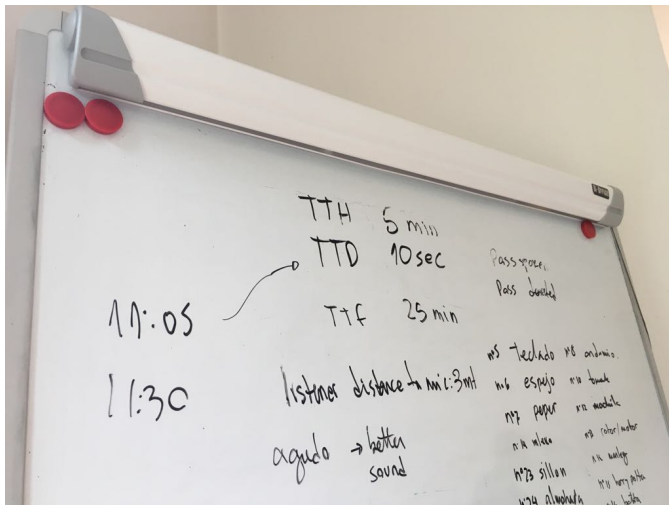 TTH 5 min
TTD 10sec
Pass
Pass
11:05
TTf 25 min
11:30
listener distance to mic:3mt
agudo → better
sound
nº5 teclado
nº6 espejo
nº7 paper
nº23 sillon
nº24 almohada
nº8 andamio.
nº10 tomate
nº12 mochila
rotor/motor
nº11 harry potter